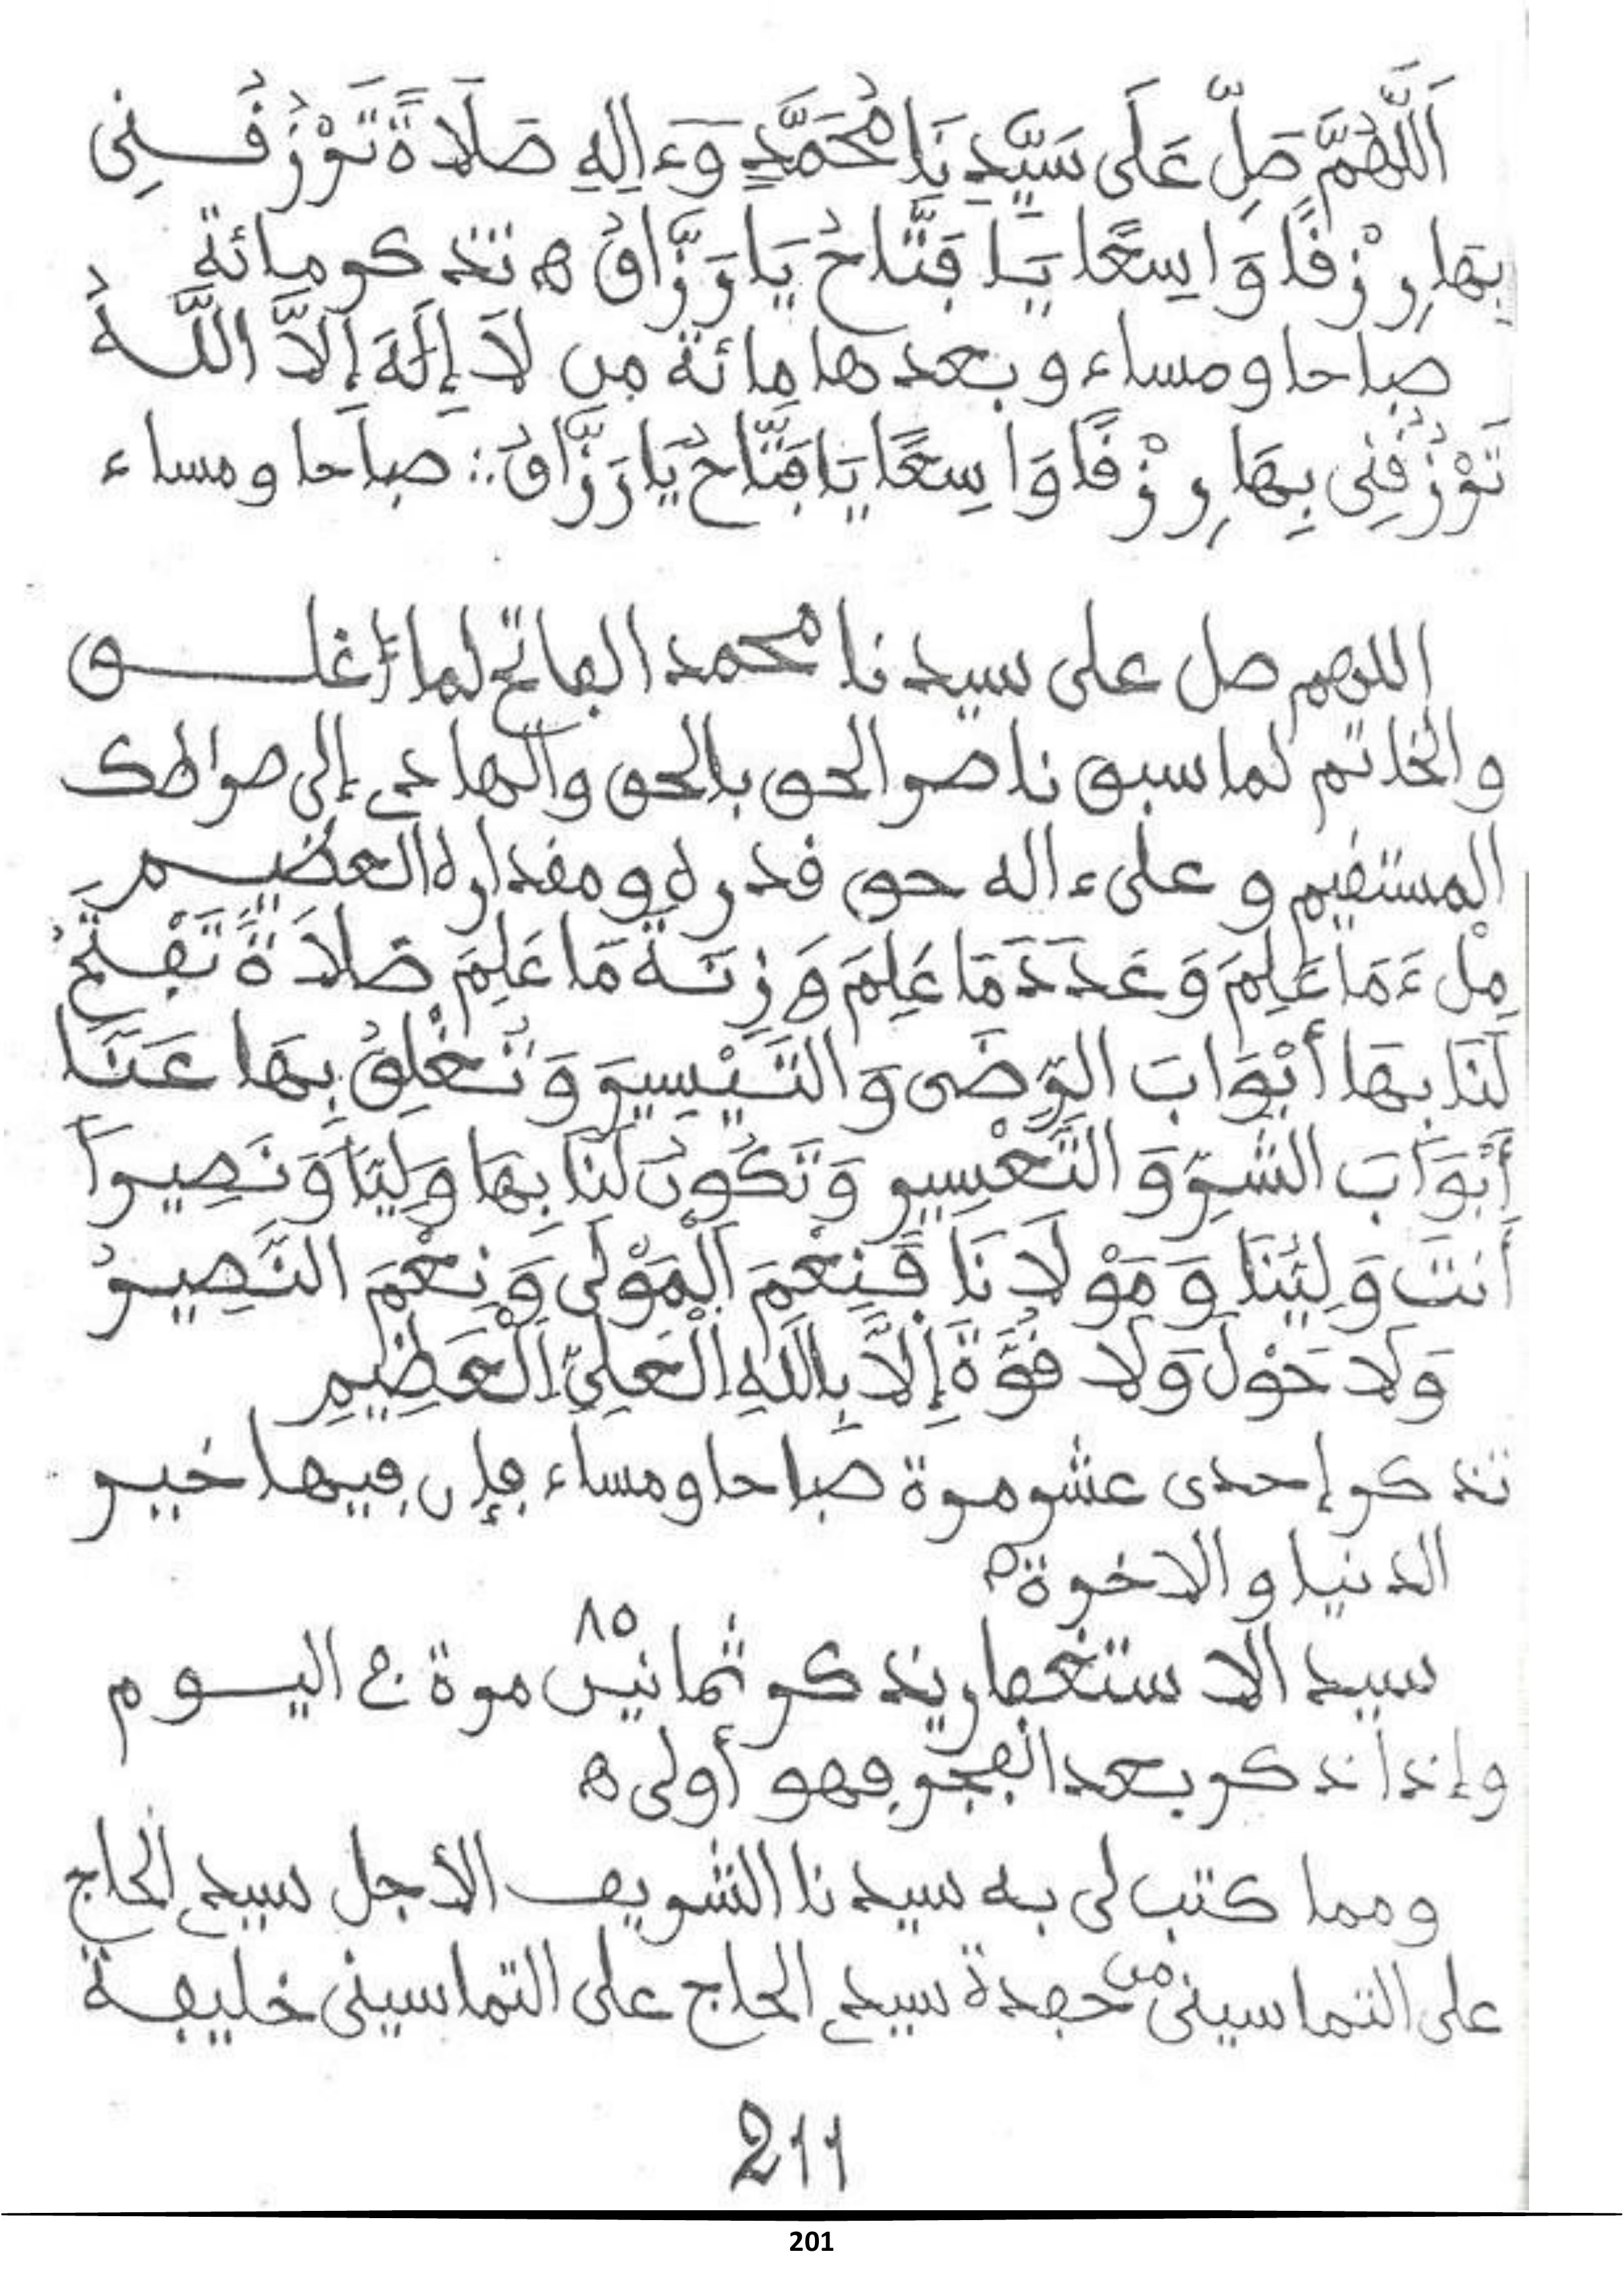 اَللَّهُمَّ صَلِّ عَلَى سَيِّدِنَا مُحَمَّدٍ وَءَالِهِ صَلَاةً تَرْزُقُنِى
بِهَا رِزْقًا وَاسِعًا يَا فَتَّاحُ يَا رَزَّاقُ ه تذكر مائة
صباحا ومساء وبعدها مائة من لَا إِلَهَ إِلَّا اللَّهُ
تَرْزُقُنِى بِهَا رِزْقًا وَاسِعًا يَا فَتَّاحُ يَا رَزَّاقُ :: صباحا ومساء
اللهم صل على سيدنا محمد الفاتح لما أغلق
والخاتم لما سبق ناصر الحق بالحق والهادي إلى صراطك
المستقيم وعلى ءاله حق قدره ومقداره العظيم
مِلْءَ مَا عَلِمَ وَعَدَدَ مَا عَلِمَ وَزِنَةَ مَا عَلِمَ صَلَاةً تَفْتَحُ
لَنَا بِهَا أَبْوَابَ الرِّضَى وَالتَّيْسِيرِ وَتُغْلِقُ بِهَا عَنَّا
أَبْوَابَ الشَّرِّ وَالتَّعْسِيرِ وَتَكُونُ لَنَا بِهَا وَلِيًّا وَنَصِيرًا
أَنتَ وَلِيُّنَا وَمَوْلَانَا فَنِعْمَ الْمَوْلَى وَنِعْمَ النَّصِيرُ
وَلَا حَوْلَ وَلَا قُوَّةَ إِلَّا بِاللَّهِ الْعَلِيِّ الْعَظِيمِ
تذكر إحدى عشر مرة صباحا ومساء فإن فيها خير
الدنيا والاخرة ه
سيد الاستغفار يذكر ثمانين ٨٥ مرة في اليوم
وإذا ذكر بعد الفجر فهو أولى ه
ومما كتب لى به سيدنا الشريف الأجل سيدي الحاج
على التماسينى من حفدة سيدي الحاج على التماسينى خليفة
211
201